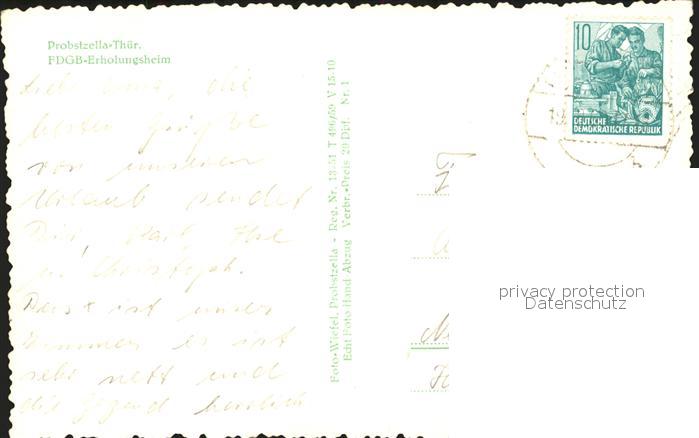 Probstzella-Thür.
FDGB-Erholungsheim
die
besten Grüße
von unserem
Urlaub sendet
Dir, Karl,
u. Christoph.
ist unser
Zimmer es ist
sehr nett und
die Gegend herrlich
Foto-Wiefel, Probstzella - Reg. Nr. 13:51 T 499/59 V 15:10
Echt Foto Hand Abzug Verbr.-Preis 20 Dpf. Nr. 1
10
DEUTSCHE
DEMOKRATISCHE REPUBLIK
privacy protection
Datenschutz